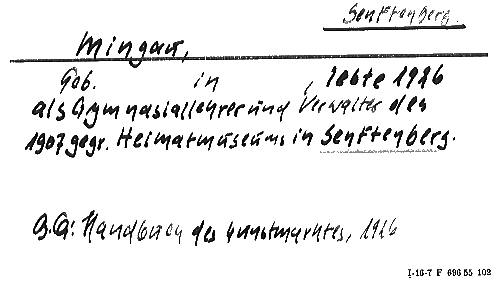 Senftenberg.
Mingau,
Geb. in , lebte 1926
als Gymnasiallehrer und Verwalter des
1907 gegr. Heimatmuseums in Senftenberg.
Handbuch des Kunstmarktes, 1926
I-16-7 F 696 55 102